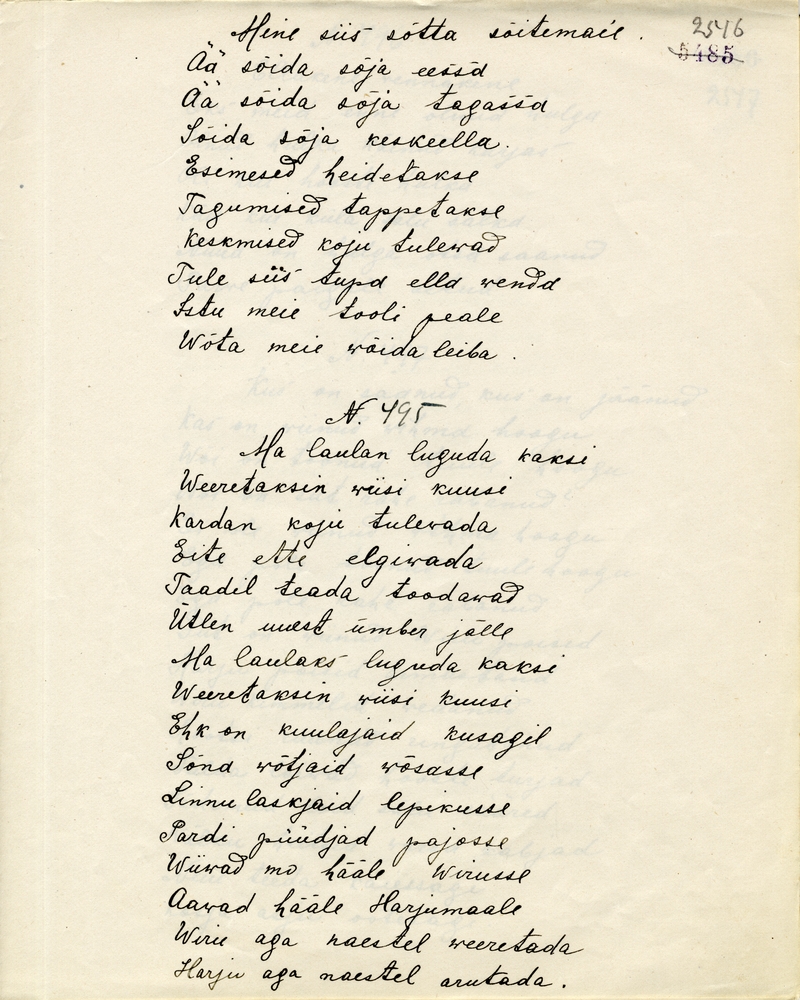 2546
5485
Mine siis sõtta sõitemaie.
Ää sõida sõja eessa
Ää sõida sõja tagassa
Sõida sõja keskeella.
Esimesed heidetakse
Tagumised tappetakse
Keskmised koju tulewad
Tule siis tupa ella wenda
Istu meie tooli peale
Wõta meie wõida leiba.
N. 495
Ma laulan luguda kaksi
Weeretaksin wiisi kuusi
Kardan koju tulewada
Eite ette elgiwada
Taadil teada toodawad
Ütlen uuest ümber jälle
Ma laulaks luguda kaksi
Weeretaksin wiisi kuusi
Ehk on kuulajaid kusagil
Sõna wõtjaid wõsasse
Linnu laskjaid lepikusse
Pardi püüdjad pajosse
Wiiwad mo hääle Wirusse
Aawad hääle Harjumaale
Wiru aga naestel weeretada
Harju aga naestel arutada.